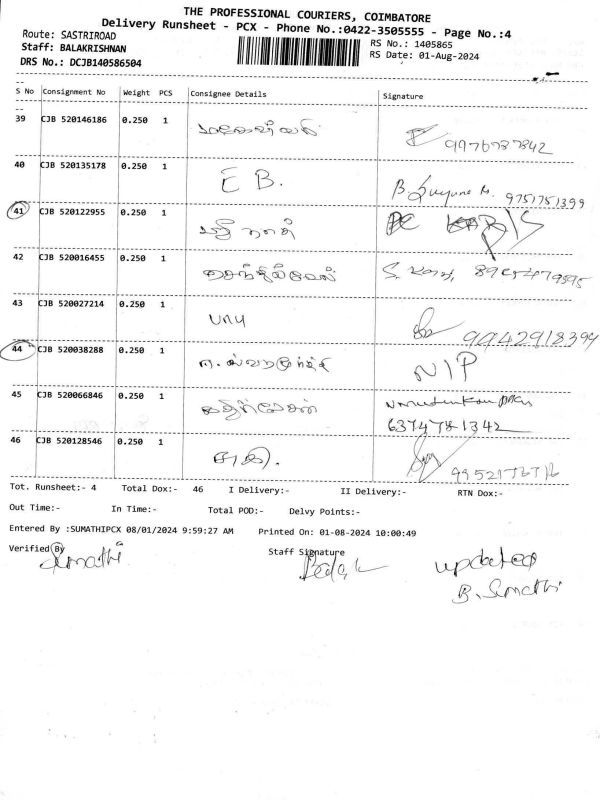 THE PROFESSIONAL COURIERS, COIMBATORE
Delivery Runsheet - PCX - Phone No.:0422-3505555 - Page No.:4
Route: SASTRIROAD
RS No.: 1405865
Staff: BALAKRISHNAN
RS Date: 01-Aug-2024
DRS No.: DCJB140586504
S No Consignment No Weight PCS Consignee Details Signature
39 CJB 520146186 0.250 1
9976737842
40 CJB 520135178 0.250 1 E B. B. 9751751399
41 CJB 520122955 0.250 1
42 CJB 520016455 0.250 1
43 CJB 520027214 0.250 1
9442918394
44 CJB 520038288 0.250 1 N/P
45 CJB 520066846 0.250 1
6374751342
46 CJB 520128546 0.250 1
Tot. Runsheet:- 4 Total Dox:- 46 I Delivery:- II Delivery:- RTN Dox:-
Out Time:- In Time:- Total POD:- Delvy Points:-
Entered By :SUMATHIPCX 08/01/2024 9:59:27 AM Printed On: 01-08-2024 10:00:49
Verified By Staff Signature
Sumathi updated
B. Sumathi